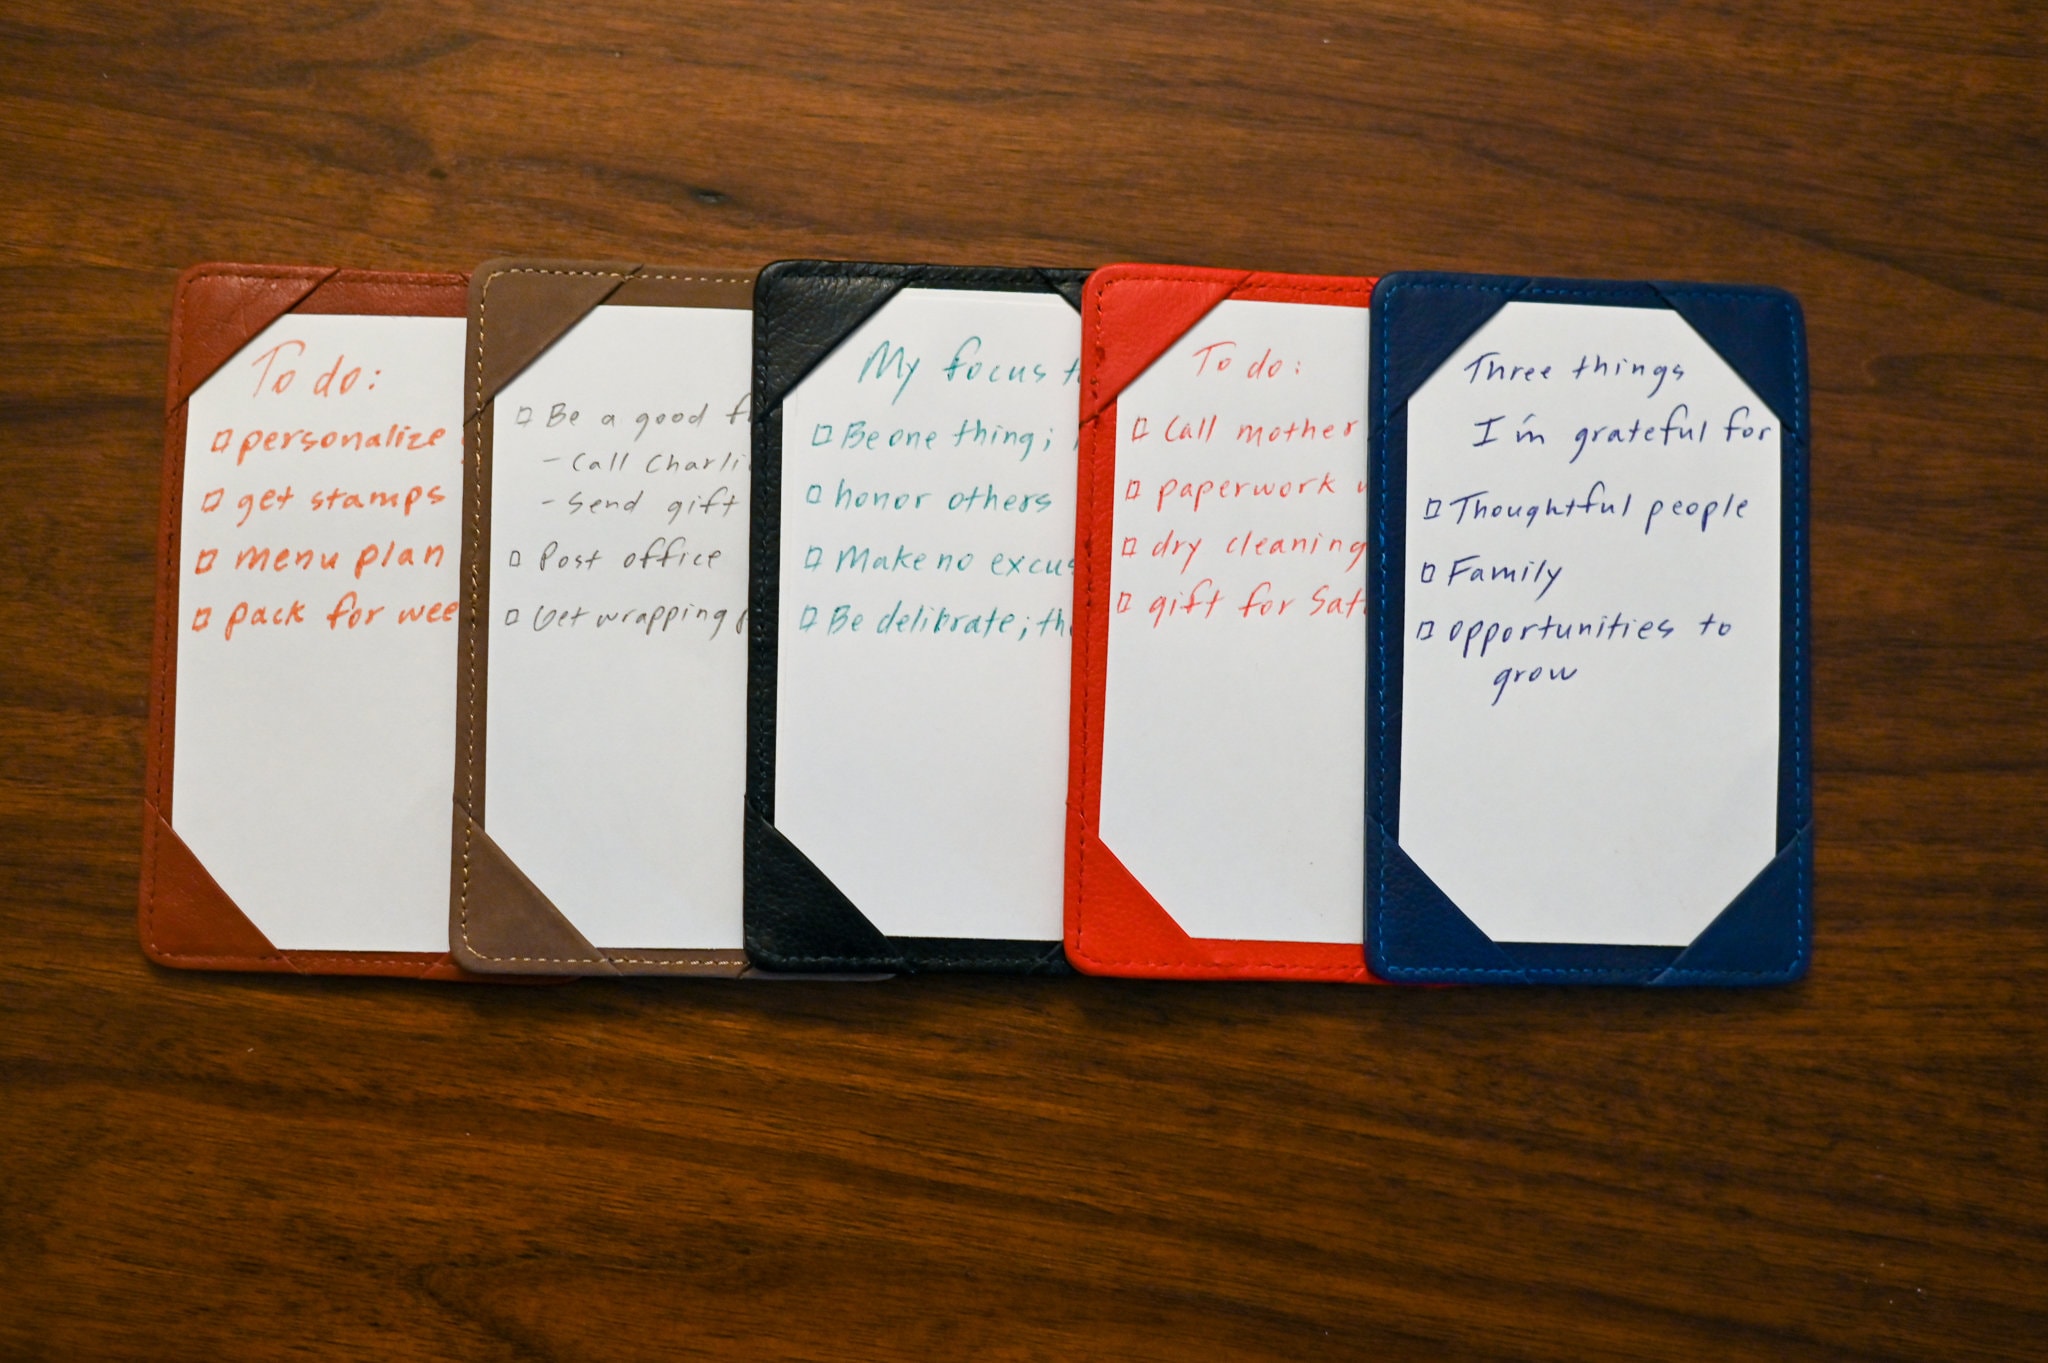 To do:
personalize
get stamps
menu plan
pack for
Be a good
- Call
- Send gift
Post office
Get wrapping
My focus
Be one thing;
honor others
Make no
Be delibrate;
To do:
Call mother
paperwork
dry cleaning
gift for
Three things
I'm grateful for
Thoughtful people
Family
opportunities to
grow